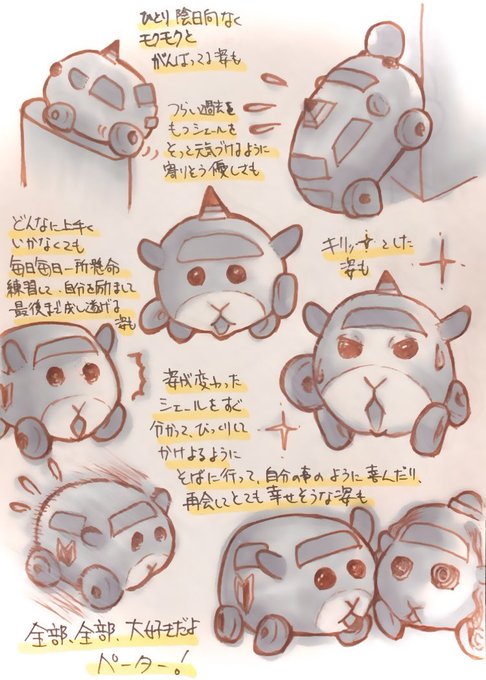 ひとり陰日向なく
モクモクと
がんばってる姿も
つらい過去を
もつシェールを
そっと元気づけるように
寄りそう優しさも
どんなに上手く
いかなくても
毎日毎日一所懸命
練習して、自分を励まして
最後まで成し遂げる
姿も
キリッとした
姿も
姿が変わった
シェールをすぐ
分かって、びっくりして
かけよるように
そばに行って、自分の事のように喜んだり、
再会してとても幸せそうな姿も
全部、全部、大好きだよ
ペーター!